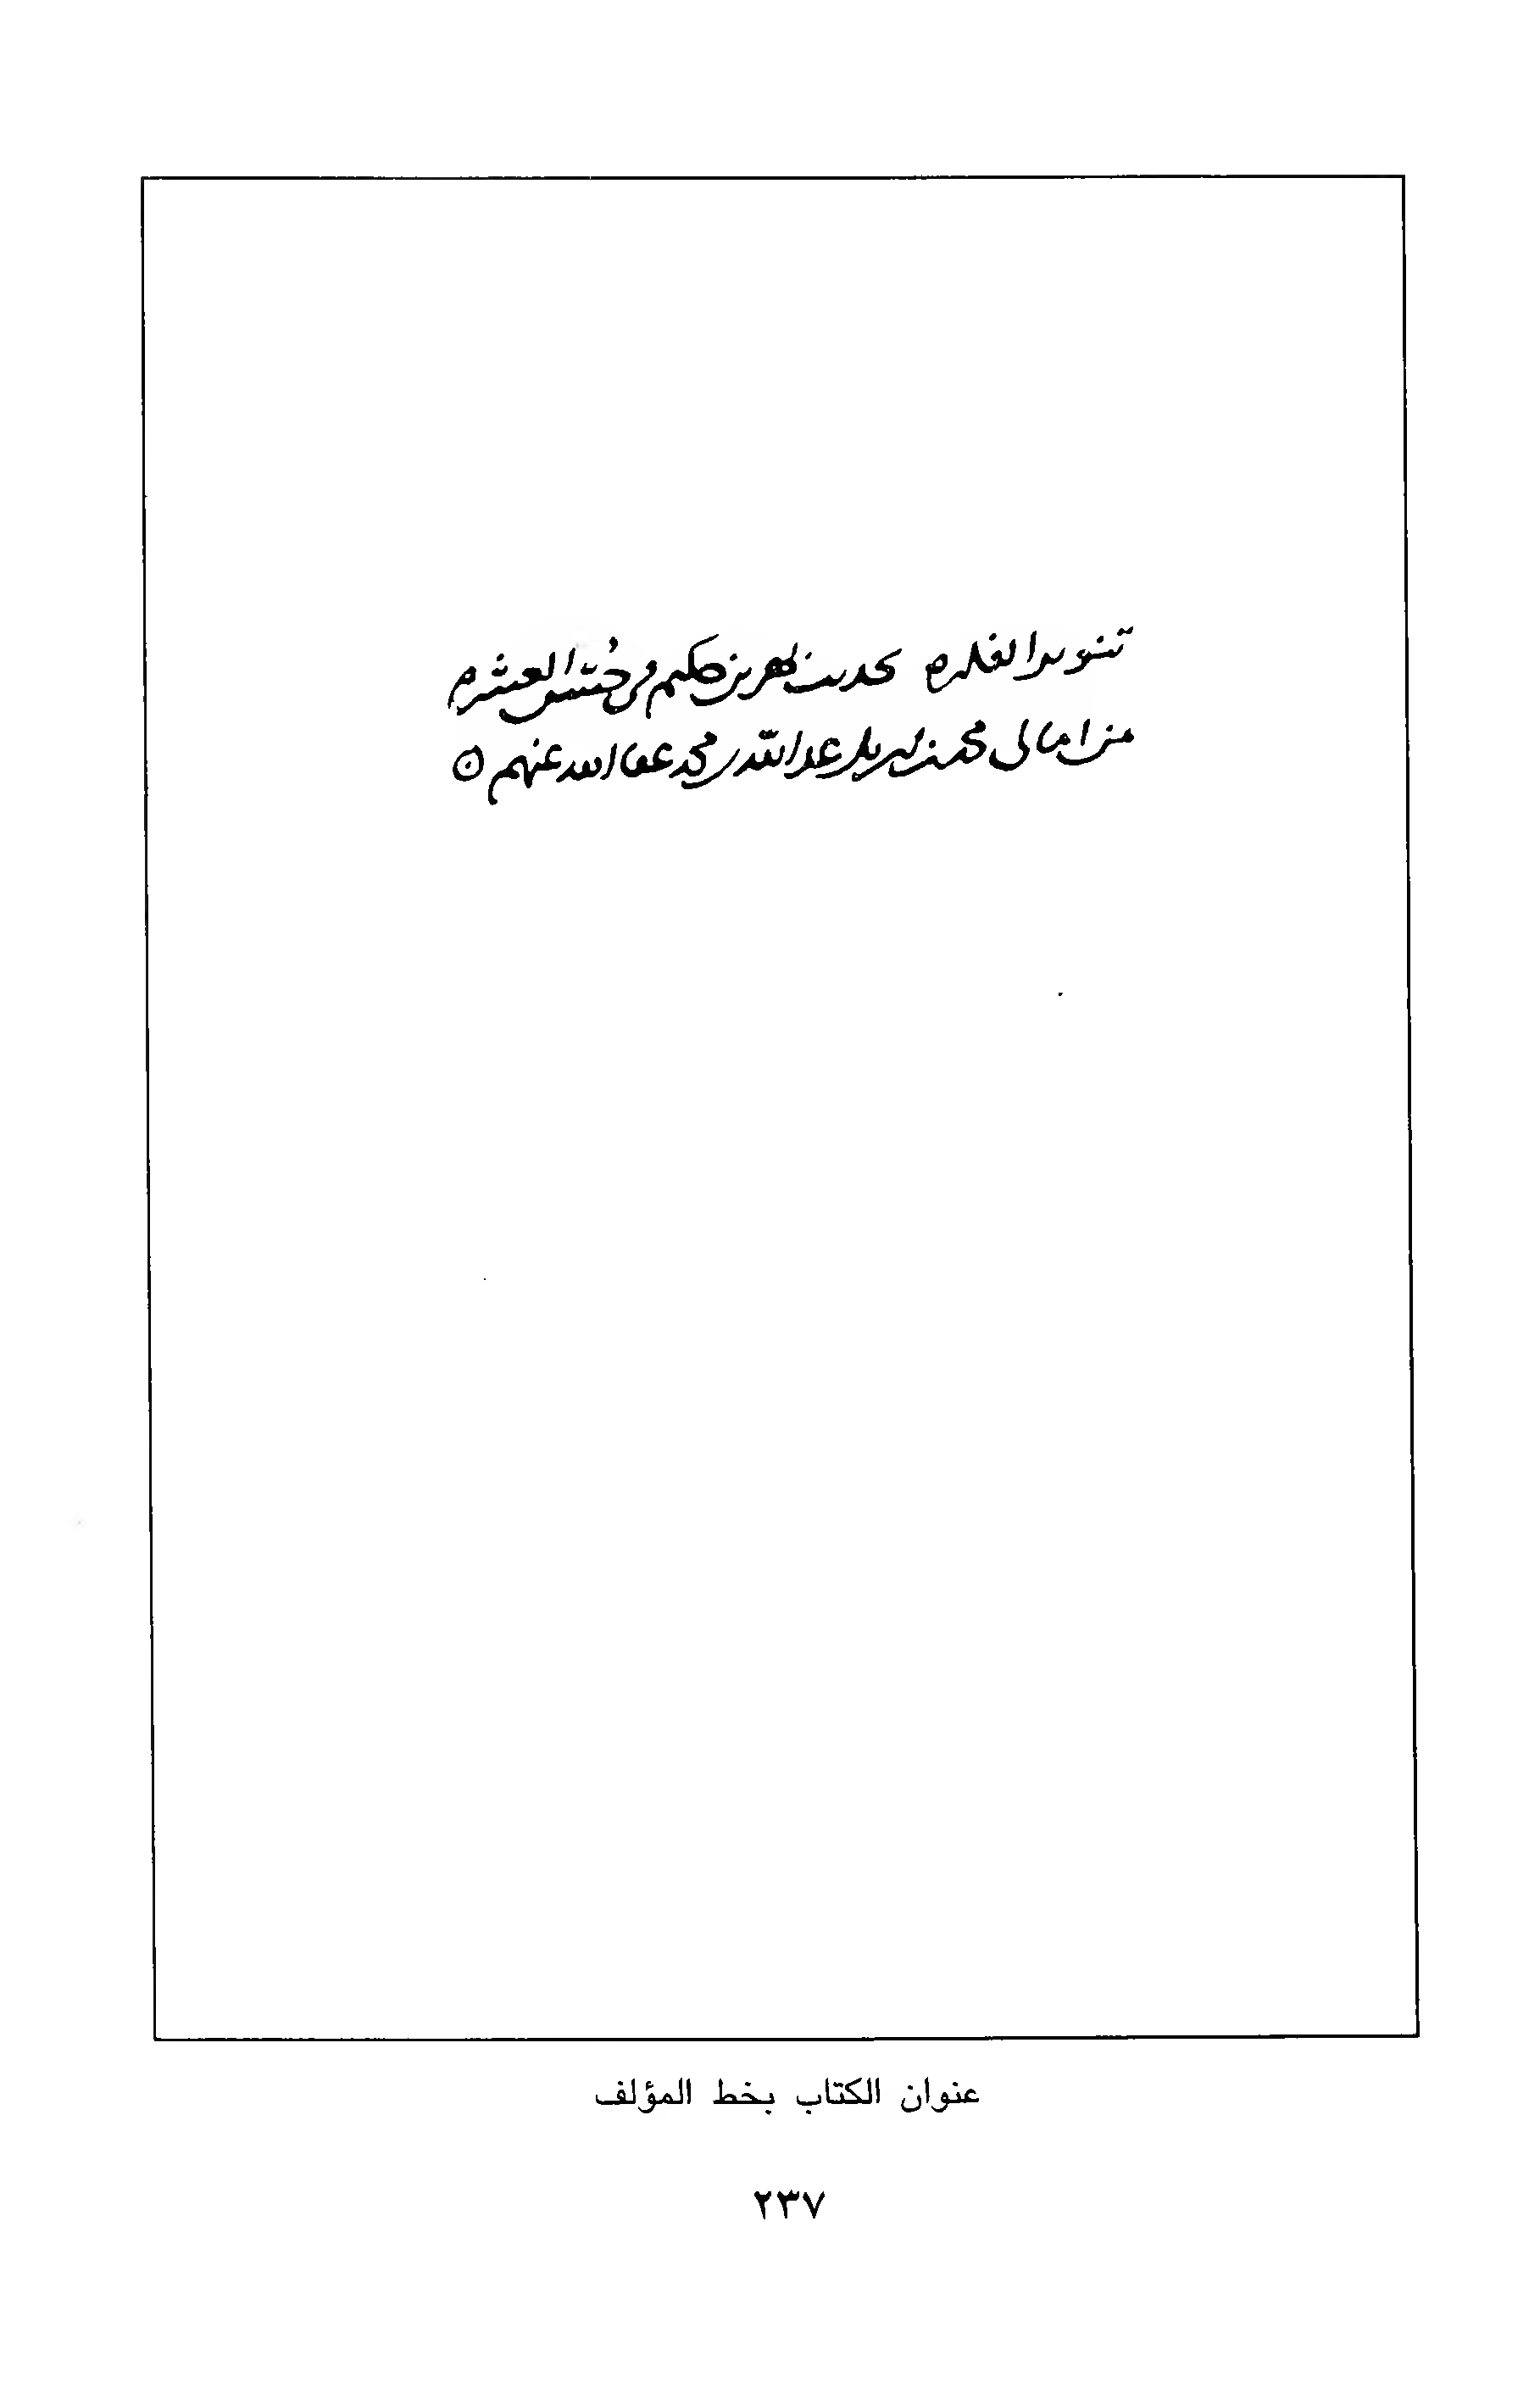 تنوير الفكرة بحديث بهز بن حكيم في حُسن العشرة
من امالي محمد بن ابي بكر عبد الله بن محمد عفا الله عنهم
عنوان الكتاب بخط المؤلف
٢٣٧